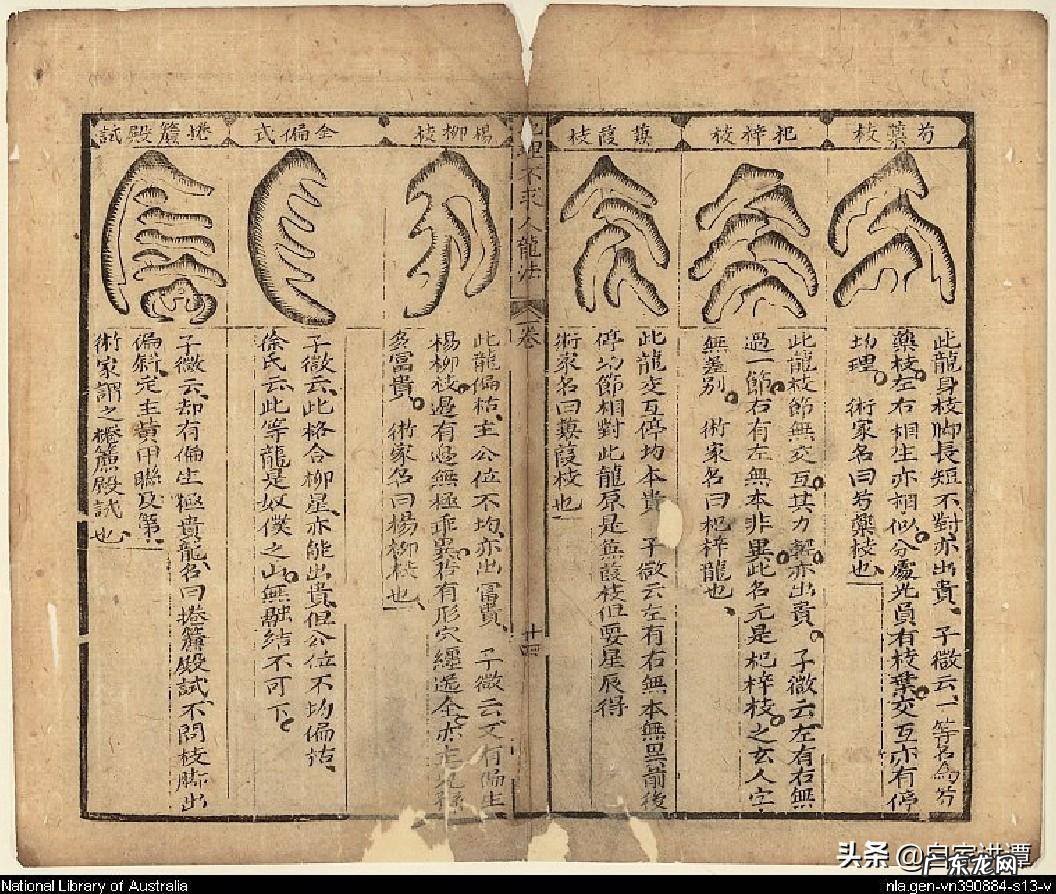 芍藥枝
此龍身枝脚長短不對亦出貴 子微云一等名為芍
藥枝左右相生亦相似分處光員有枝葉交互亦有停
均理 術家名曰芍藥枝也
杞梓枝
此龍枝節無交互其力輕亦出貴 子微云左有右無
過一節右有左無本非異此名元是杞梓枝之玄人字
無差別 術家名曰杞梓龍也
蒹葭枝
此龍交互停均本貴 子微云左有右無本無異前後
停均節相對此龍原是蒹葭枝但要星辰得
術家名曰蒹葭枝也
地理不求人龍法 卷 十四
楊柳枝
此龍偏枯主公位不均亦出富貴 子微云又有偏生
楊柳枝邊有邊無極乖異若有形穴纏送全亦主
多富貴 術家名曰楊柳枝也
全偏式
子微云此格合柳星亦能出貴但公位不均偏枯
徐氏云此等龍是奴僕之山無融結不可下
捲簾殿試
子微云却有偏生極貴龍名曰捲簾殿試不問枝脚出
偏斜定主黃甲聯及第
術家謂之捲簾殿試也
头条 @自家讲谭
广东龙网
National Library of Australia
nla.gen-vn390884-s13-v